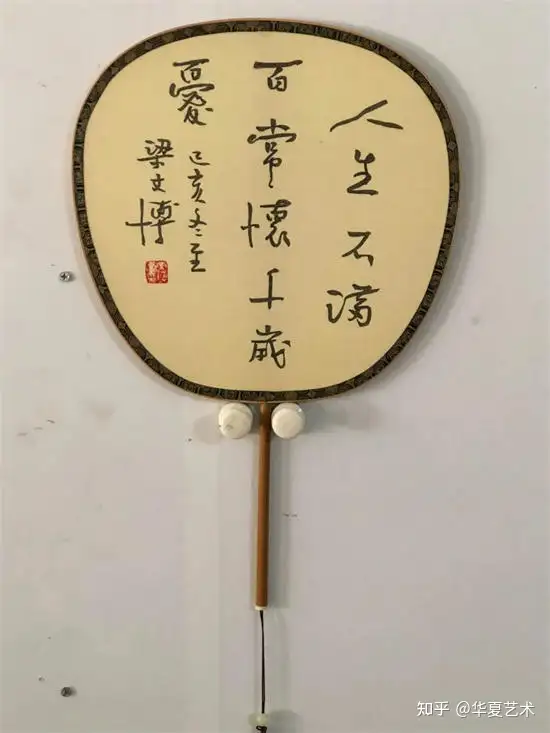 人生不满
百常懷千歲
憂
己亥冬至
梁文博
知乎 @华夏艺术